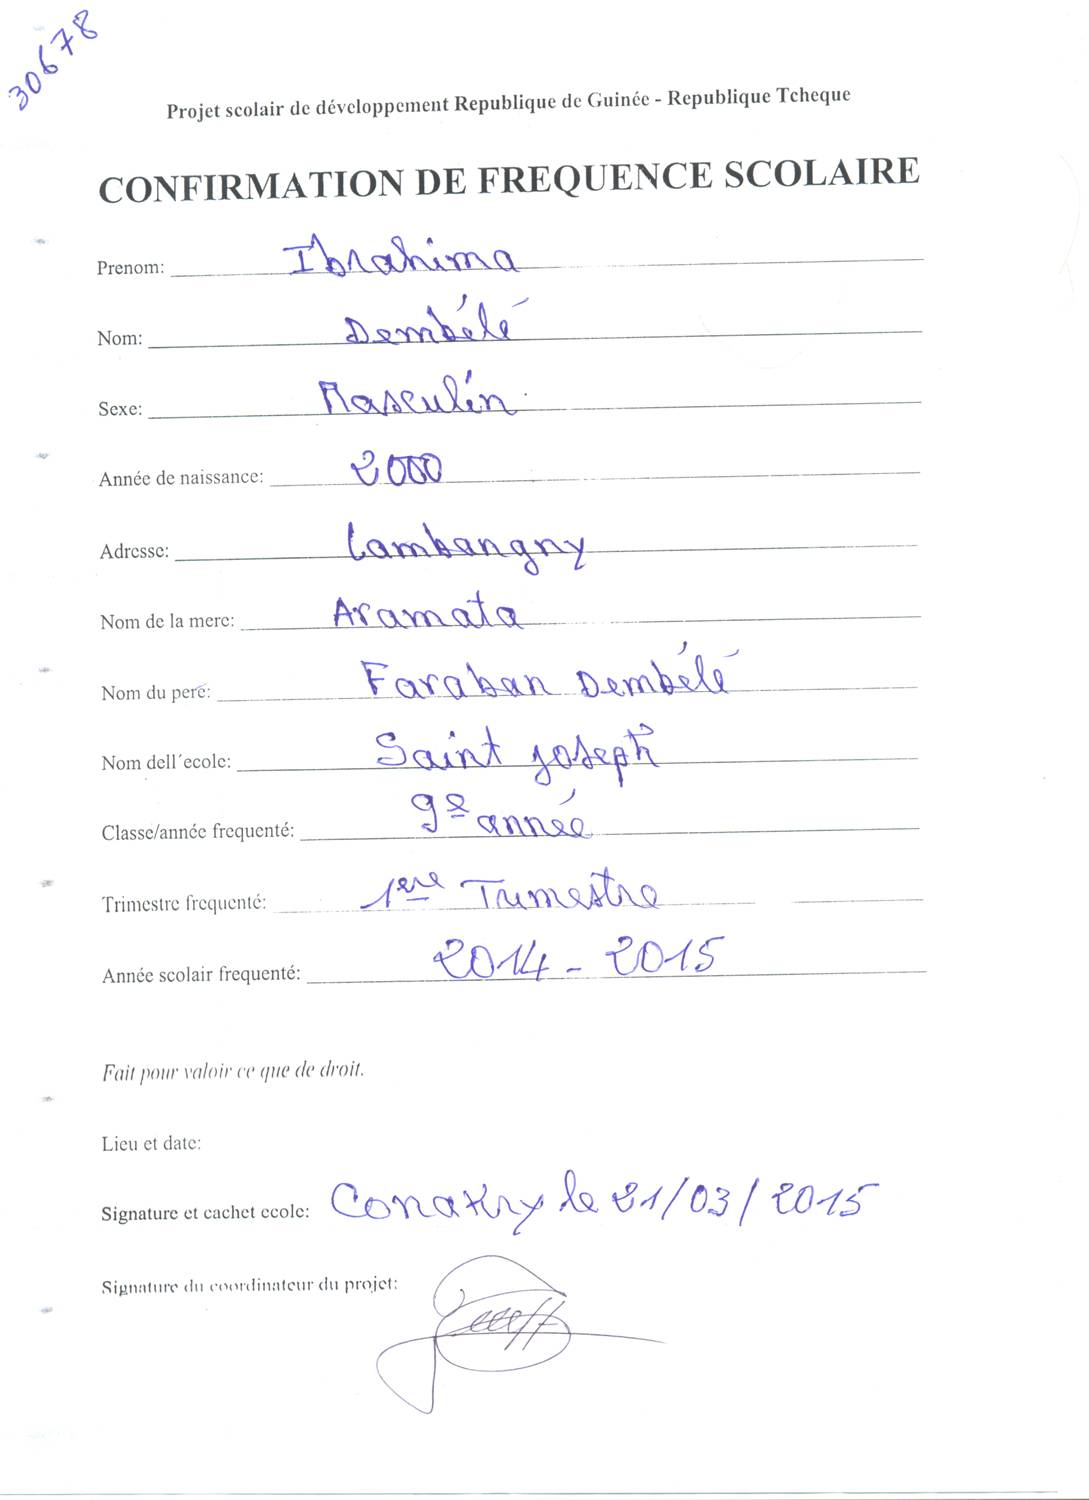 30678
Projet scolair de développement Republique de Guinée - Republique Tcheque
CONFIRMATION DE FREQUENCE SCOLAIRE
Prenom: Ibrahima
Nom: Dembélé
Sexe: Masculin
Année de naissance: 2000
Adresse: Lambangny
Nom de la mere: Aramata
Nom du pere: Faraban Dembélé
Nom dell´ecole: Saint Joseph
Classe/année frequenté: 9e année
Trimestre frequenté: 1ere Trimestre
Année scolair frequenté: 2014 - 2015
Fait pour valoir ce que de droit.
Lieu et date:
Signature et cachet ecole: Conakry le 21/03/2015
Signature du coordinateur du projet: